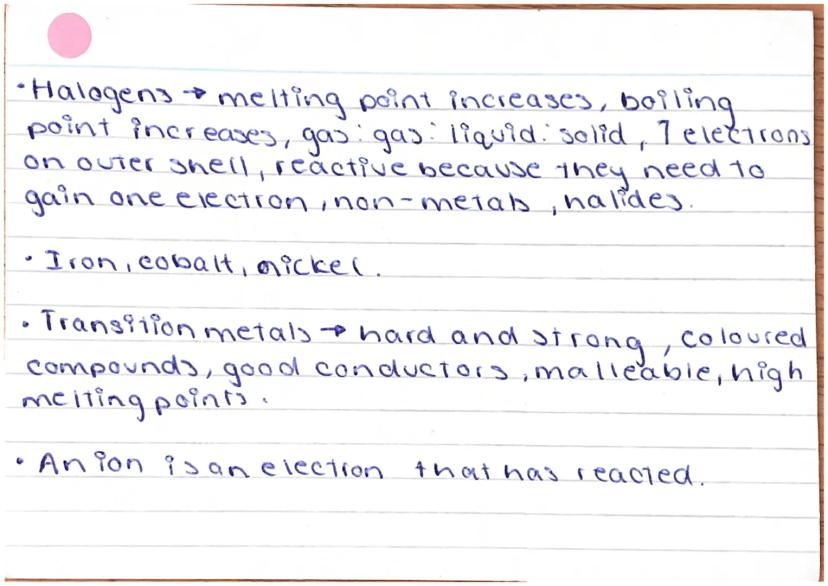 · Halogens → melting point increases, boiling
point increases, gas : gas : liquid : solid, 7 electrons
on outer shell, reactive because they need to
gain one electron, non-metals, halides.
· Iron, cobalt, nickel.
· Transition metals → hard and strong, coloured
compounds, good conductors, malleable, high
melting points.
· An ion is an election that has reacted.